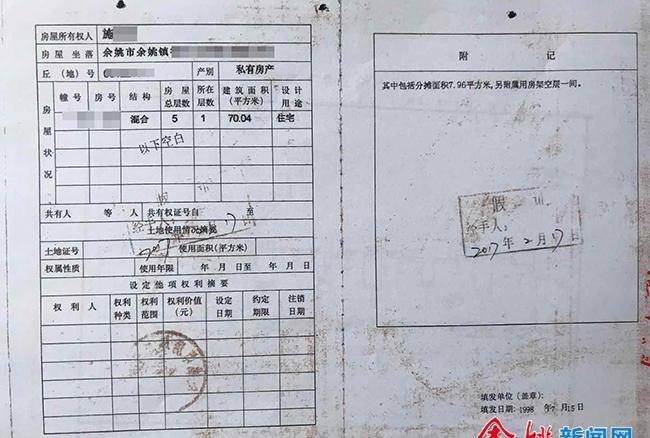 房屋所有权人 施
房屋坐落 余姚市余姚镇
丘(地)号 产别 私有房产
房屋状况
幢号 房号 结构 房屋总层数 所在层数 建筑面积(平方米) 设计用途
混合 5 1 70.04 住宅
以下空白
共有人 等 人 共有权证号自 至
土地使用情况摘要
土地证号 使用面积(平方米)
权属性质 使用年限 年 月 日至 年 月 日
设定他项权利摘要
权利人 权利种类 权利范围 权利价值(元) 设定日期 约定期限 注销日期
假
经手人:
2017
附记
其中包括分摊面积7.96平方米,另附属用房架空层一间。
假
经手人:
2017年2月17日
填发单位(盖章):
填发日期:1998 年7 月15日
余姚新闻网